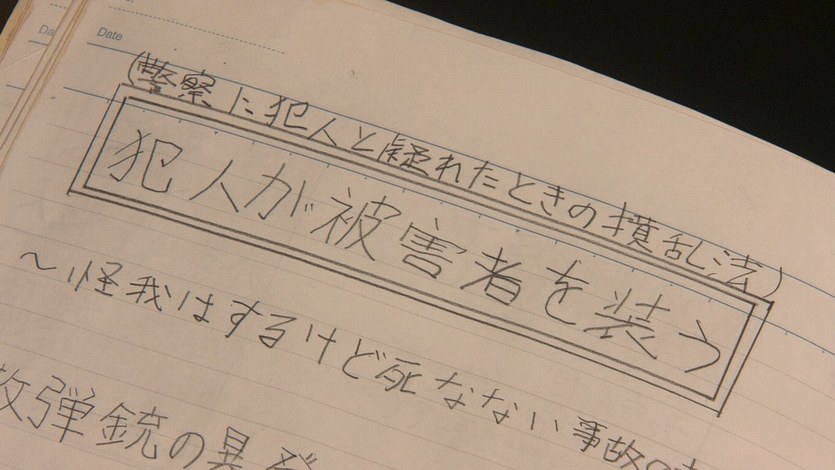 Date
(警察に犯人と疑れたときの攪乱法)
犯人が被害者を装う
〜怪我はするけど死なない事故の
弾銃の暴発